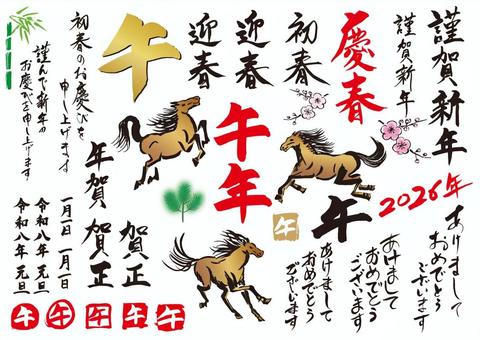 謹賀新年
謹賀新年
慶春
初春
迎春
迎春
午
初春のお慶びを
申し上げます
謹んで新年の
お慶びを申し上げます
午年
2026年
午
午
あけまして
おめでとう
ございます
あけまして
おめでとう
ございます
あけまして
おめでとう
ございます
年賀
賀正
賀正
一月一日
一月一日
令和八年 元旦
令和八年 元旦
午
午
午
午
午